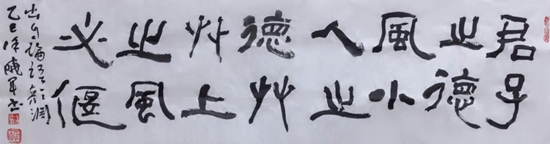 君子
之德
風小
人之
德艸
艸上
之風
必偃
出自論語顏淵
乙巳徐曉軍書